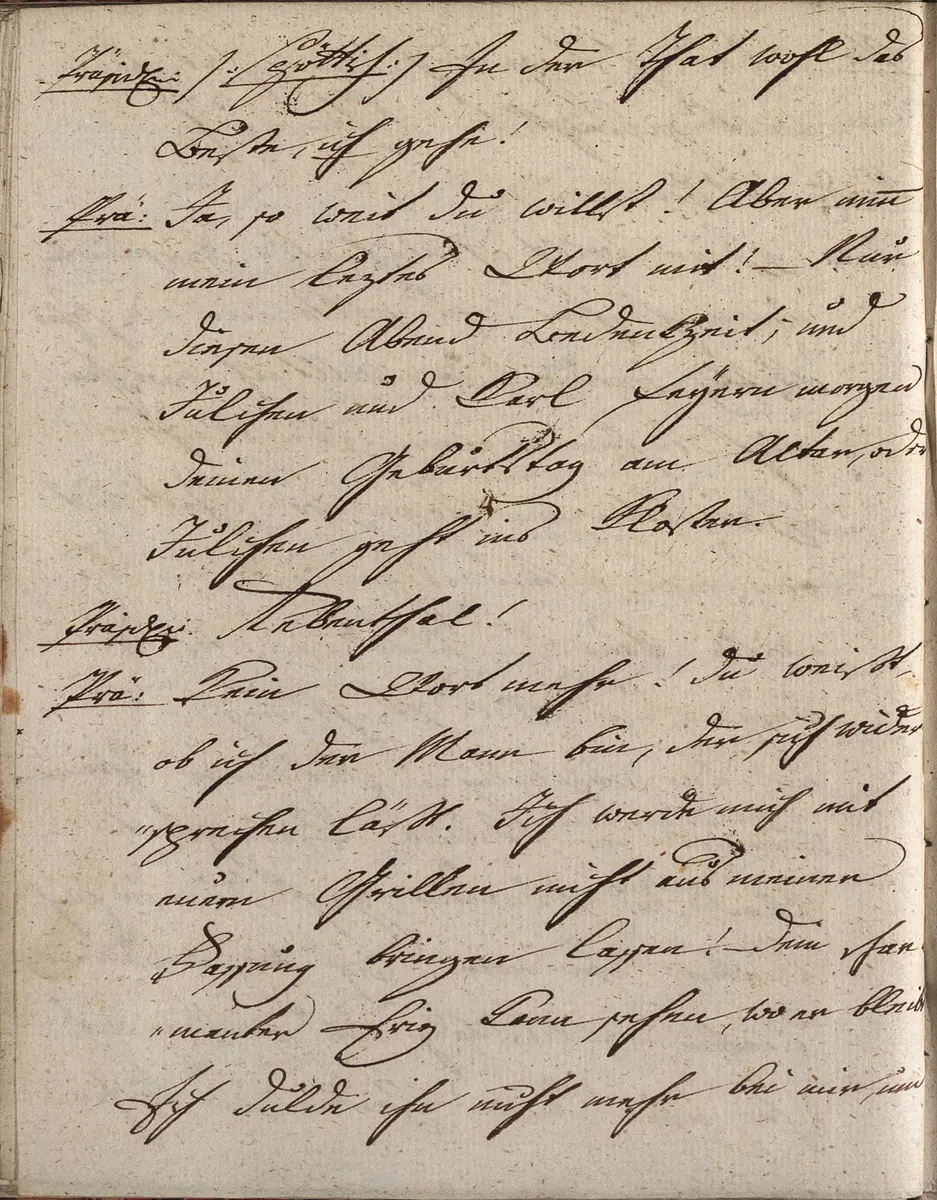 Präsidtin: /: spöttisch :/ In der That wohl das
Beste, ich gehe!
Prä: Ja, so weit du willst! Aber nim̅
mein leztes Wort mit! – Nur
diesen Abend Bedenkzeit; und
Julchen und Carl feyern morgen
deinen Geburtstag am Altar, oder
Julchen geht ins Kloster.
Präsidtin. Rebenthal!
Prä: Kein Wort mehr! du weißt,
ob ich der Mann bin, der sich wider
"sprechen läßt. Ich werde mich mit
euern Grillen nicht aus meiner
Fassung bringen lassen! Dein char
"manter Friz kann sehen, wo er bleibt
Ich dulde ihn nicht mehr bei mir, und